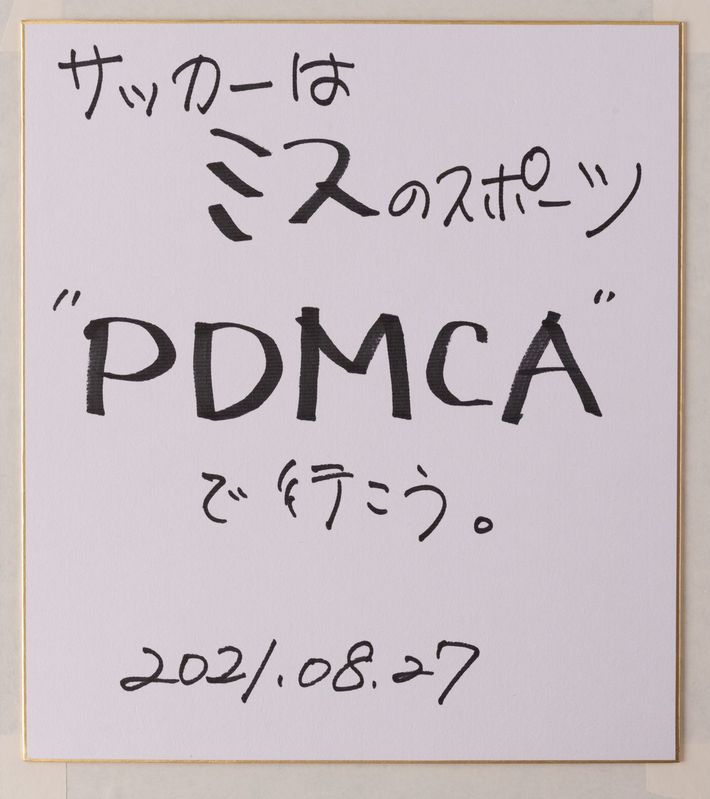 サッカーは
ミスのスポーツ
"PDMCA"
で行こう。
2021.08.27